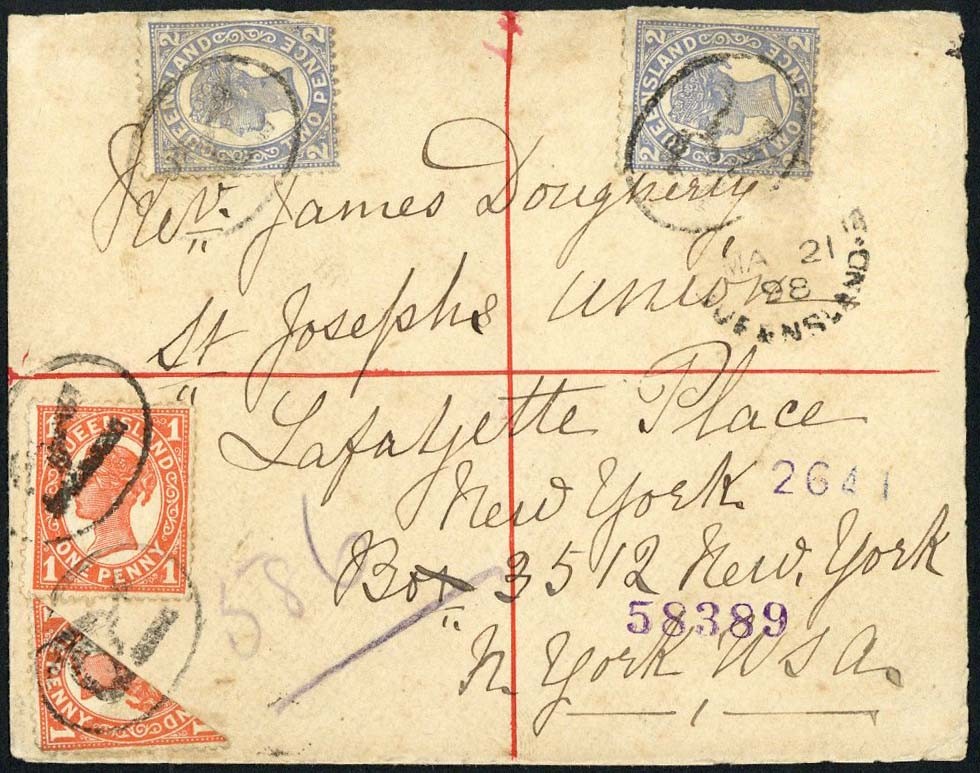 2 QUEENSLAND 2
2 TWO PENCE 2
2 QUEENSLAND 2
2 TWO PENCE 2
Rev. James Dougherty,
MA 21
98
QUEENSLAND
St Josephs Union
Lafayette Place
1 QUEENSLAND 1
1 ONE PENNY 1
New York
2641
586
Box 3512 New. York
58389
N. York, U S A.
PENNY 1